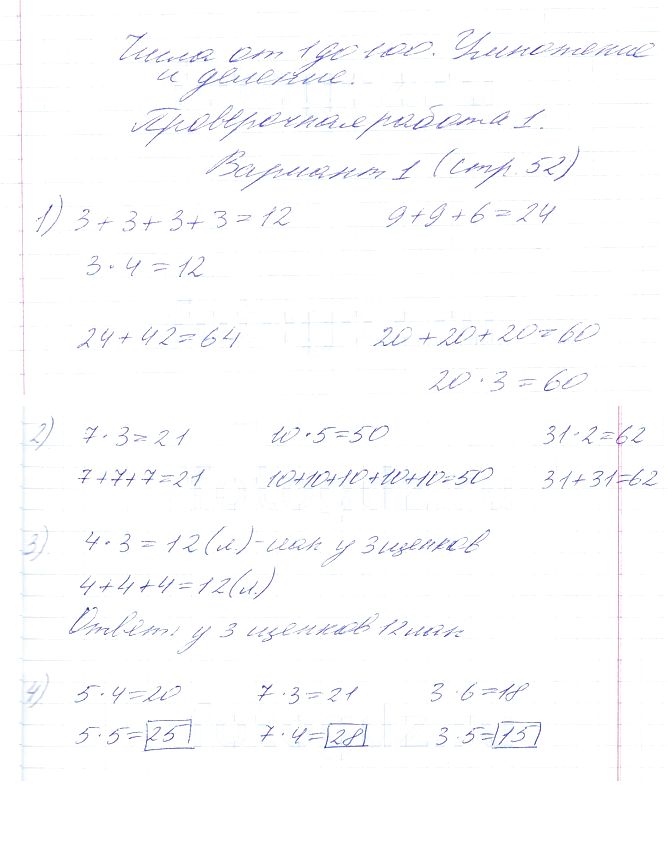 Числа от 1 до 100. Умножение
и деление.
Проверочная работа 1.
Вариант 1 (стр. 52)
1) 3 + 3 + 3 + 3 = 12 9 + 9 + 6 = 24
3 · 4 = 12
24 + 42 = 64 20 + 20 + 20 = 60
20 · 3 = 60
2) 7 · 3 = 21 10 · 5 = 50 31 · 2 = 62
7 + 7 + 7 = 21 10+10+10+10+10=50 31 + 31 = 62
3) 4 · 3 = 12 (л.) - лап у 3 щенков
4 + 4 + 4 = 12 (л.)
Ответ: у 3 щенков 12 лап
4) 5 · 4 = 20 7 · 3 = 21 3 · 6 = 18
5 · 5 = 25 7 · 4 = 28 3 · 5 = 15